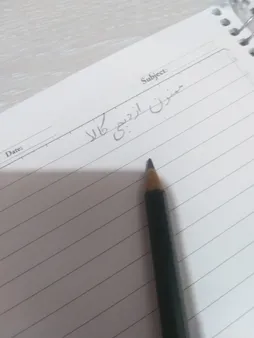 Subject:
Date:
ممنون از دیجی کالا